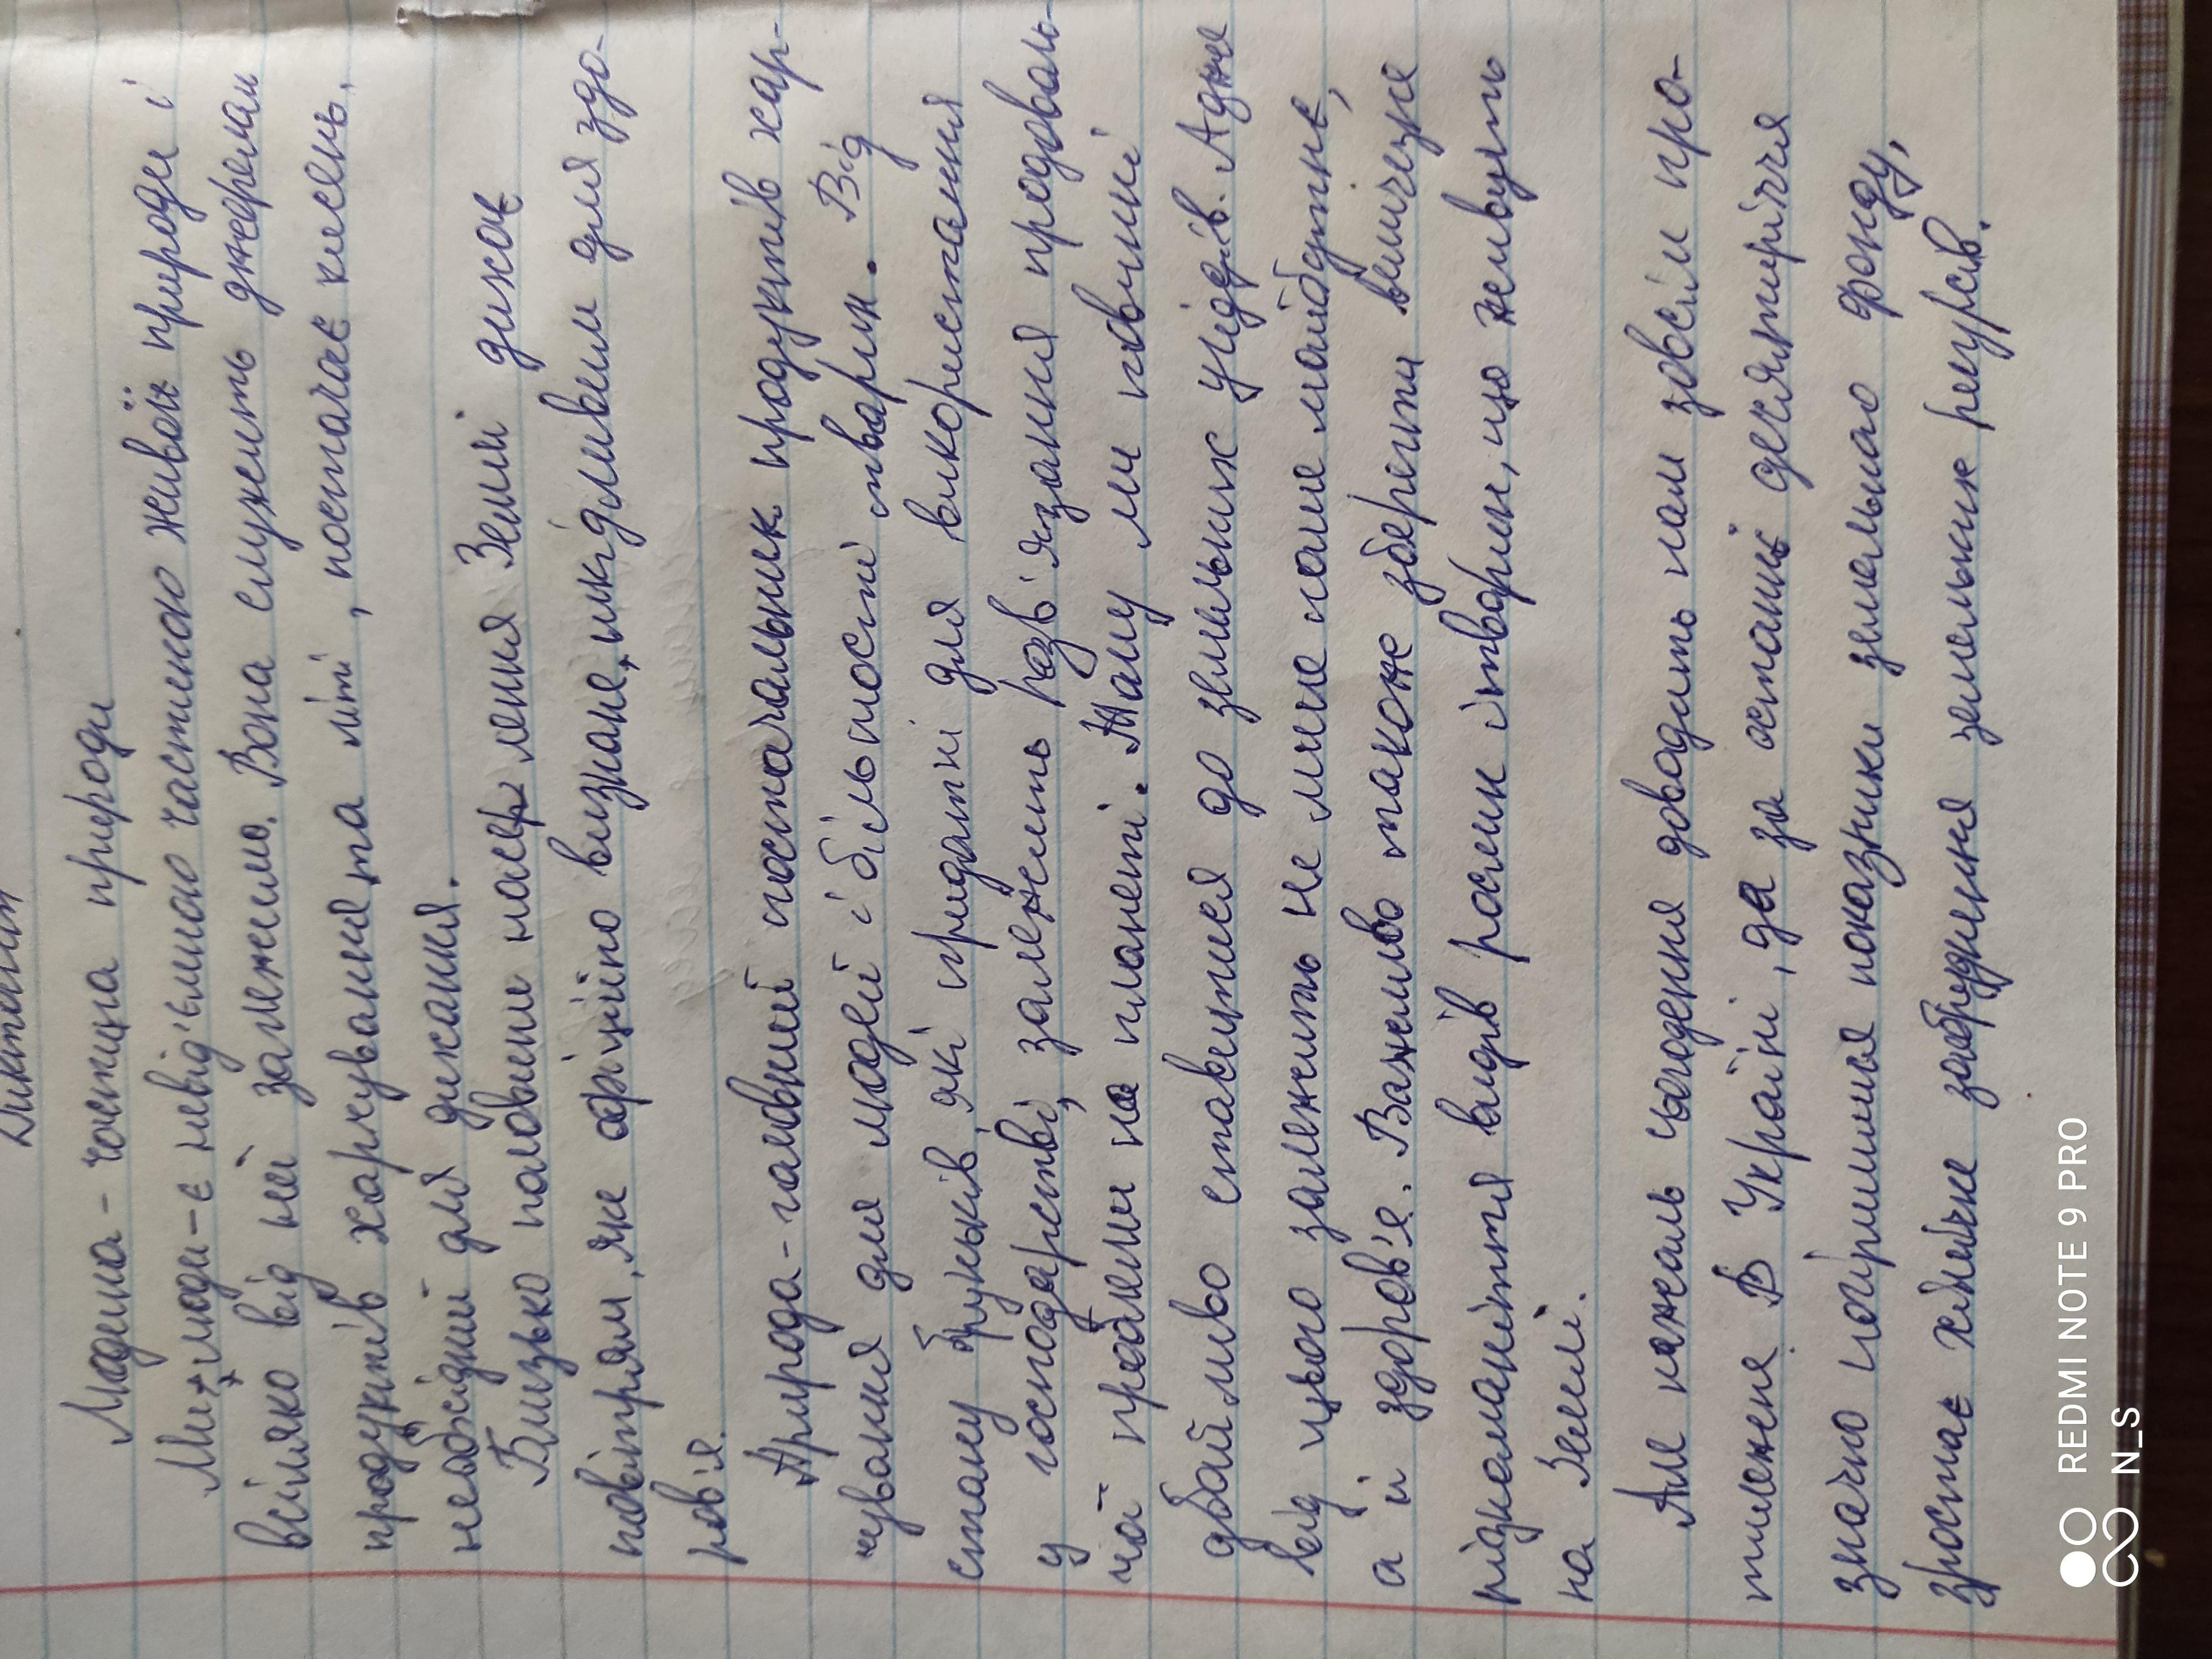 Диктант
Людина - частина природи
Ми, люди - є невід'ємною частиною живої природи і
всіляко від неї залежимо. Вона служить джерелом
продуктів харчування, та літі, постачає кисень,
необхідний для дихання.
Близько половини населення Землі дихає
повітрям, яке офіційно визнане, шкідливим для здо-
ров'я.
Природа - головний постачальник продуктів хар-
чування для людей і більшості тварин. Від
стану ґрунтів, які придатні для використання
у господарстві, залежить розв'язання продоволь-
чої проблеми на планеті. Тому ми повинні
дбайливо ставитися до земельних угідь. Адже
від цього залежить не лише наше майбутнє,
а й здоров'я. Важливо також зберегти величезне
різноманіття видів рослин і тварин, що живуть
на Землі.
Але нажаль сьогодення доводить нам зовсім про-
тилежне. В Україні, де за останнє десятиріччя
значно погіршися показники земельного фонду,
зростає хімічне забруднення земельних ресурсів.
REDMI NOTE 9 PRO
N_S